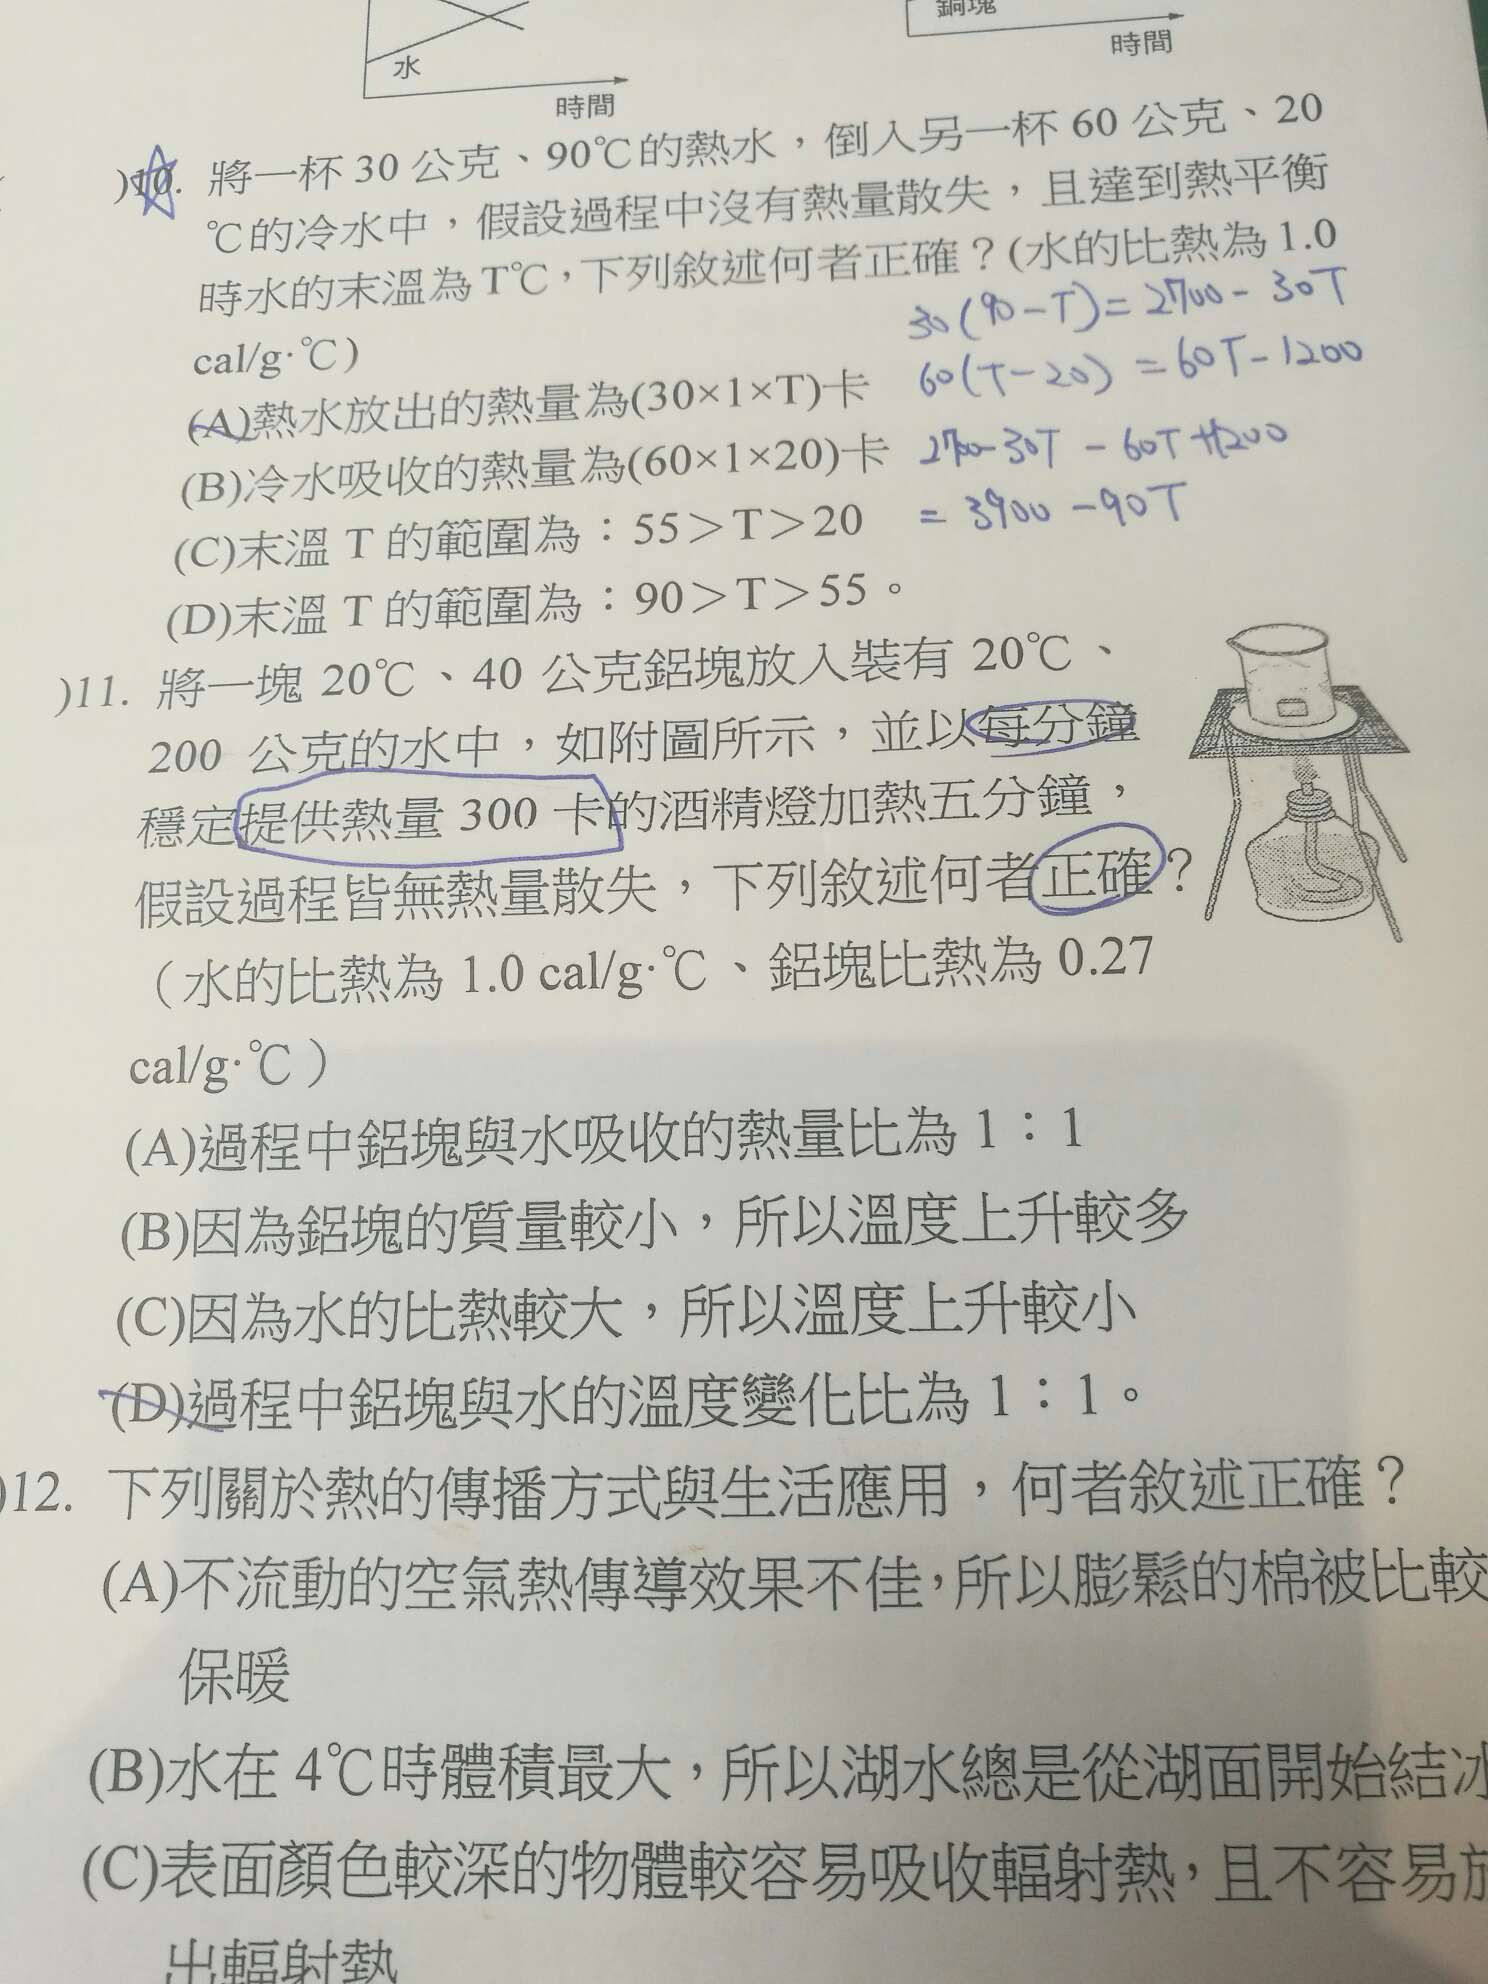 水
時間
銅塊
時間
)10. 將一杯 30 公克、90℃的熱水，倒入另一杯 60 公克、20
℃的冷水中，假設過程中沒有熱量散失，且達到熱平衡
時水的末溫為T℃，下列敘述何者正確？(水的比熱為 1.0
cal/g·℃)
30(90-T)=2700-30T
(A)熱水放出的熱量為(30×1×T)卡
60(T-20) =60T-1200
(B)冷水吸收的熱量為(60×1×20)卡
2700-30T-60T+1200
(C)末溫 T 的範圍為：55＞T＞20
= 3900-90T
(D)末溫 T 的範圍為：90＞T＞55。
)11. 將一塊 20℃、40 公克鋁塊放入裝有 20℃、
200 公克的水中，如附圖所示，並以每分鐘
穩定提供熱量 300 卡的酒精燈加熱五分鐘，
假設過程皆無熱量散失，下列敘述何者正確？
（水的比熱為 1.0 cal/g·℃、鋁塊比熱為 0.27
cal/g·℃）
(A)過程中鋁塊與水吸收的熱量比為 1：1
(B)因為鋁塊的質量較小，所以溫度上升較多
(C)因為水的比熱較大，所以溫度上升較小
(D)過程中鋁塊與水的溫度變化比為 1：1。
)12. 下列關於熱的傳播方式與生活應用，何者敘述正確？
(A)不流動的空氣熱傳導效果不佳，所以膨鬆的棉被比較
保暖
(B)水在 4℃時體積最大，所以湖水總是從湖面開始結冰
(C)表面顏色較深的物體較容易吸收輻射熱，且不容易放
出輻射熱